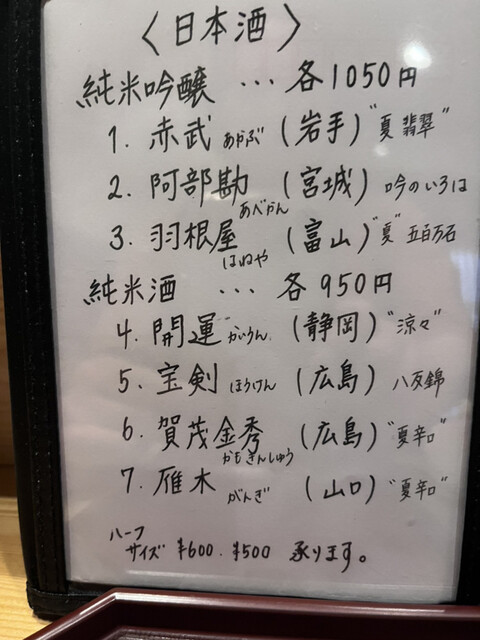 〈日本酒〉
純米吟醸 … 各1050円
1. 赤武 あかぶ (岩手) "夏 翡翠"
2. 阿部勘 あべかん (宮城) 吟のいろは
3. 羽根屋 はねや (富山) "夏" 五百万石
純米酒 … 各950円
4. 開運 かいうん (静岡) "涼々"
5. 宝剣 ほうけん (広島) 八反錦
6. 賀茂金秀 かもきんしゅう (広島) "夏辛口"
7. 雁木 がんぎ (山口) "夏辛口"
ハーフサイズ ¥600. ¥500 承ります。